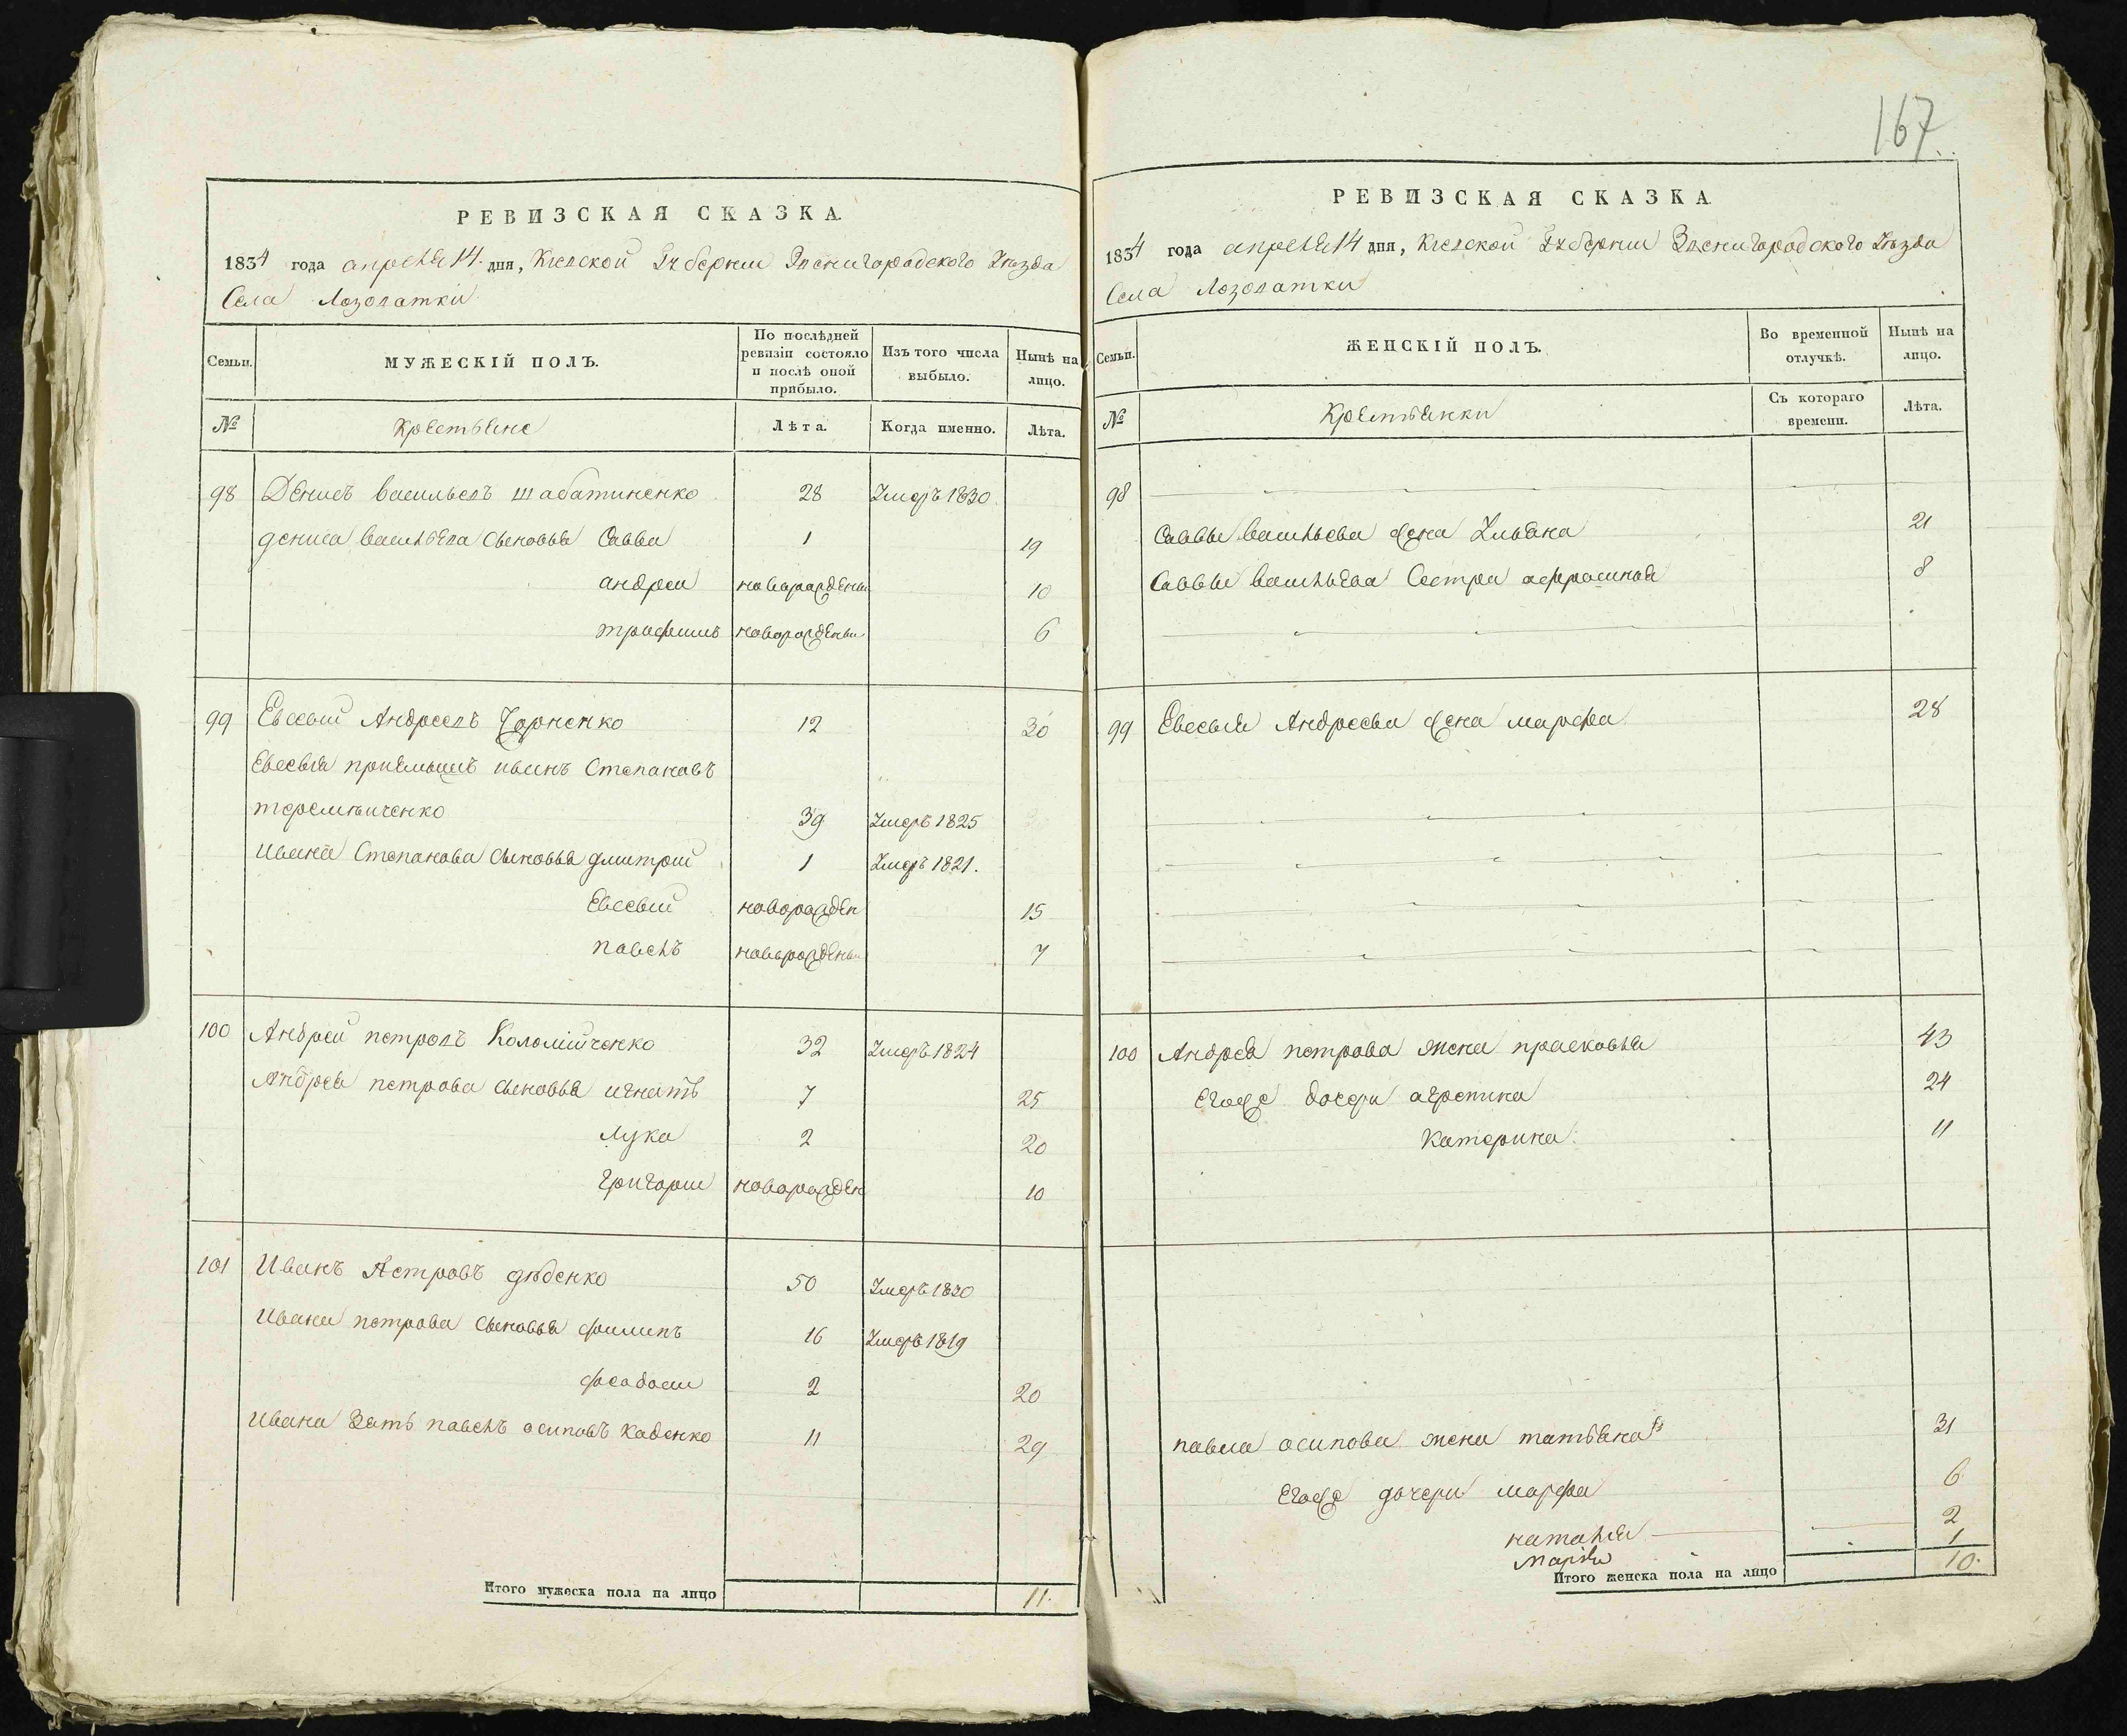 167.
РЕВИЗСКАЯ СКАЗКА.
1834 года апреля 14. дня, Киевской Губернии Звенигородского Уезда
Села Лозоватки
Семьи. МУЖЕСКІЙ ПОЛЪ. По послѣдней ревизіи состояло и послѣ оной прибыло. Изъ того числа выбыло. Нынѣ на лицо.
№ Крестьяне Лѣта. Когда именно. Лѣта.
98 Денисъ васильевъ шабатиненко 28 Умеръ 1830
дениса васильева сыновья Савва 1 19
андреи новорожденны 10
трофимъ новорожденны 6
99 Евсевий Андреевъ 12 30
Евсевия приемышъ иванъ Степановъ
39 Умеръ 1825
Ивана Степанова сыновья дмитрий 1 Умеръ 1821.
Евсевий новорожден 15
павелъ новорожденны 7
100 Андрей петровъ Коломійченко 32 Умеръ 1824
Андрея петрова сыновья игнатъ 7 25
лука 2 20
григории новорожден 10
101 Иванъ Петровъ дѣденко 50 Умеръ 1830
Ивана петрова сыновья филипъ 16 Умеръ 1819
феодосии 2 20
Ивана Зять павелъ осиповъ каденко 11 29
Итого мужеска пола на лицо 11.
РЕВИЗСКАЯ СКАЗКА.
1834 года апреля 14 дня, Киевской Губернии Звенигородского Уезда
Села Лозоватки
Семьи. ЖЕНСКІЙ ПОЛЪ. Во временной отлучкѣ. Нынѣ на лицо.
№ Крестьянки Съ котораго времени. Лѣта.
98
Саввы васильева жена Ульяна 21
Саввы васильева Сестра 8
99 Евсевия Андреева жена марфа 28
100 Андрея петрова жена прасковья 43
Егоже дочери агрепина 24
Катерина. 11
павла осипова жена татьяна 31
Егоже дочери марфа 6
наталия 2
мария 1
Итого женска пола на лицо 10.